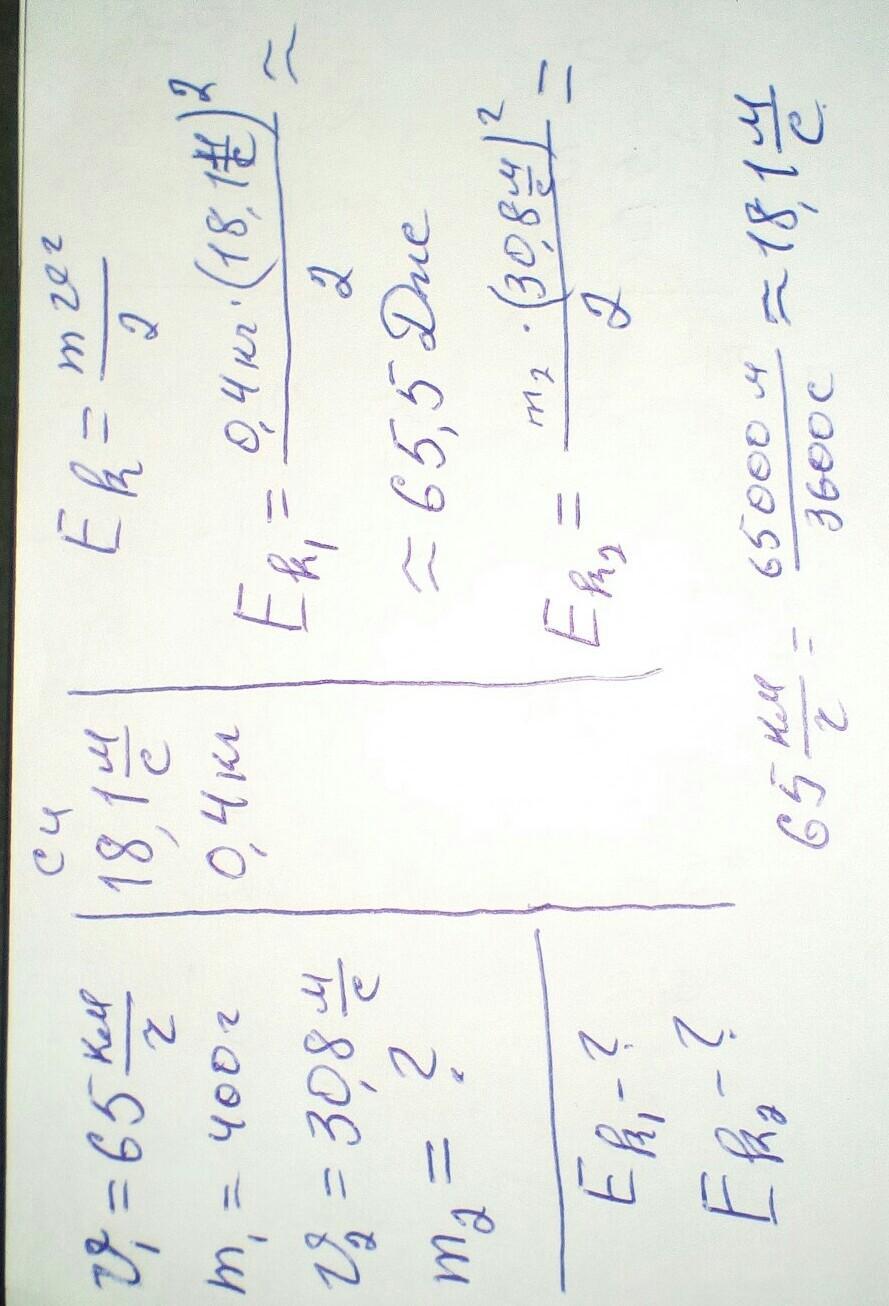 υ₁ = 65 км/ч
m₁ = 400 г
υ₂ = 30,8 м/с
m₂ = ?
Eк₁ - ?
Eк₂ - ?
СИ
18,1 м/с
0,4 кг
Eк = mυ²/2
Eк₁ = 0,4 кг · (18,1 м/с)²/2 ≈
≈ 65,5 Дж
Eк₂ = m₂ · (30,8 м/с)²/2 =
65 км/ч = 65000 м/3600 с ≈ 18,1 м/с